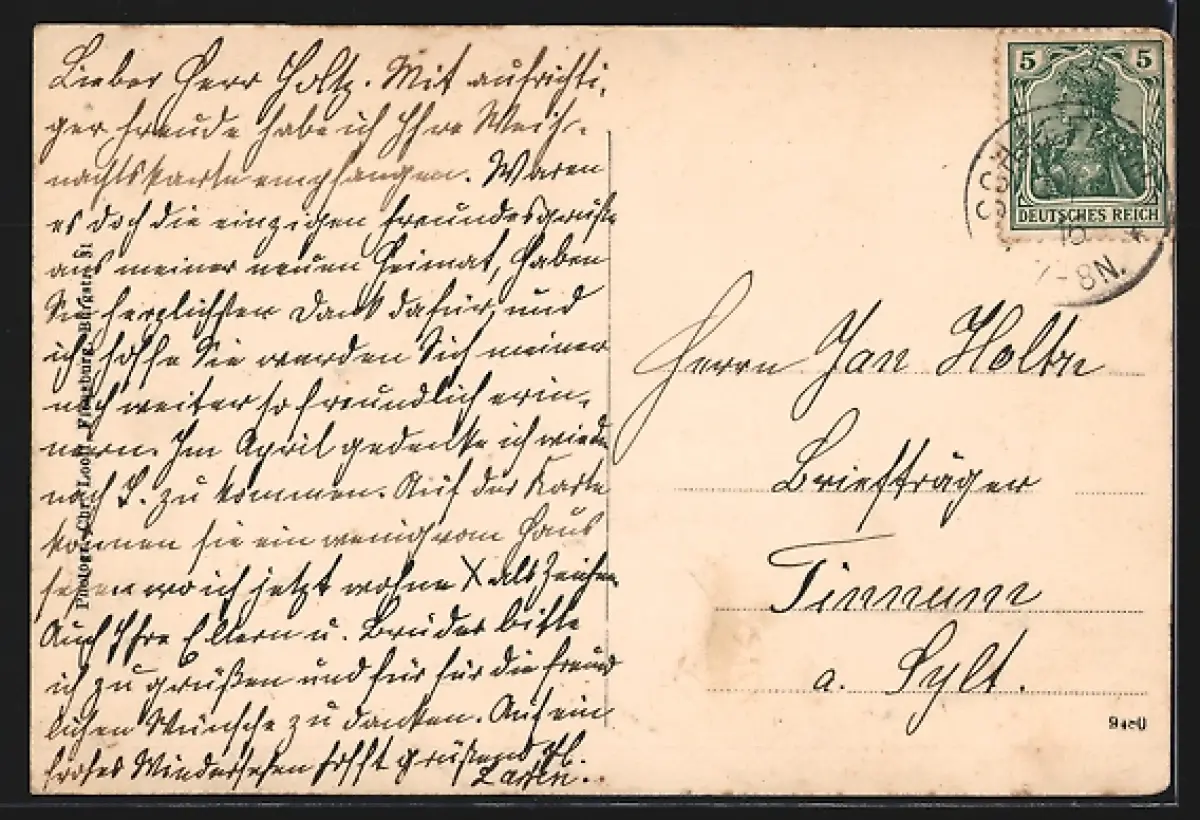 Lieber Herr Holtz. Mit aufrichti-
ger Freude habe ich Ihre Weih-
nachtskarte empfangen. Waren
es doch die einzigen Freundesgrüße
aus meiner neuen Heimat, haben
Sie herzlichsten Dank dafür, und
ich hoffe Sie werden Sich meiner
noch weiter so freundlich erin-
nern. Im April gedenke ich wieder
nach S. zu kommen. Auf der Karte
können sie ein wenig vom Haus
sehen wo ich jetzt wohne X als Zeichen
Auch Ihre Eltern u. Bruder bitte
ich zu grüßen und für für die freund
lichen Wünsche zu danken. Auf ein
frohes Wiedersehen hofft grüßend
Photogr. Chr. Loof, Flensburg, Burgstr. 31
5 5
DEUTSCHES REICH
7-8N.
Herrn Jan Holtz
Briefträger
Tinnum
a. Sylt.